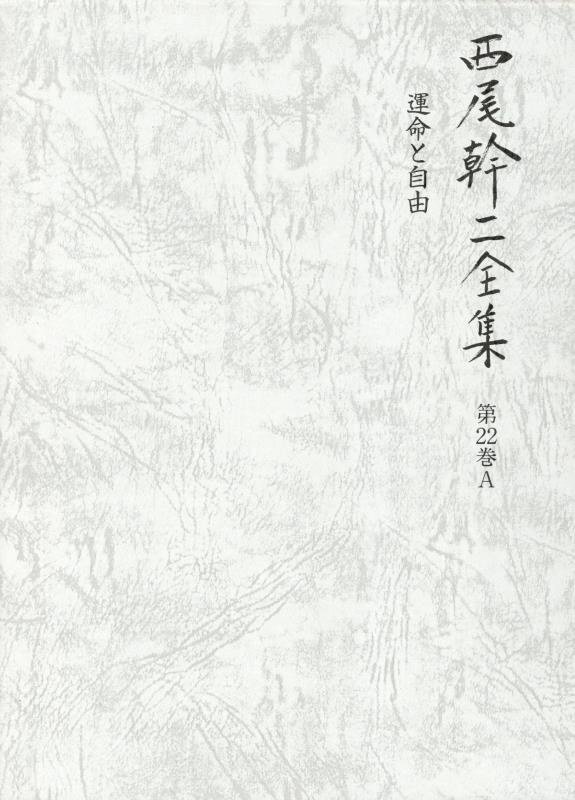 西尾幹二全集
第22巻A
運命と自由